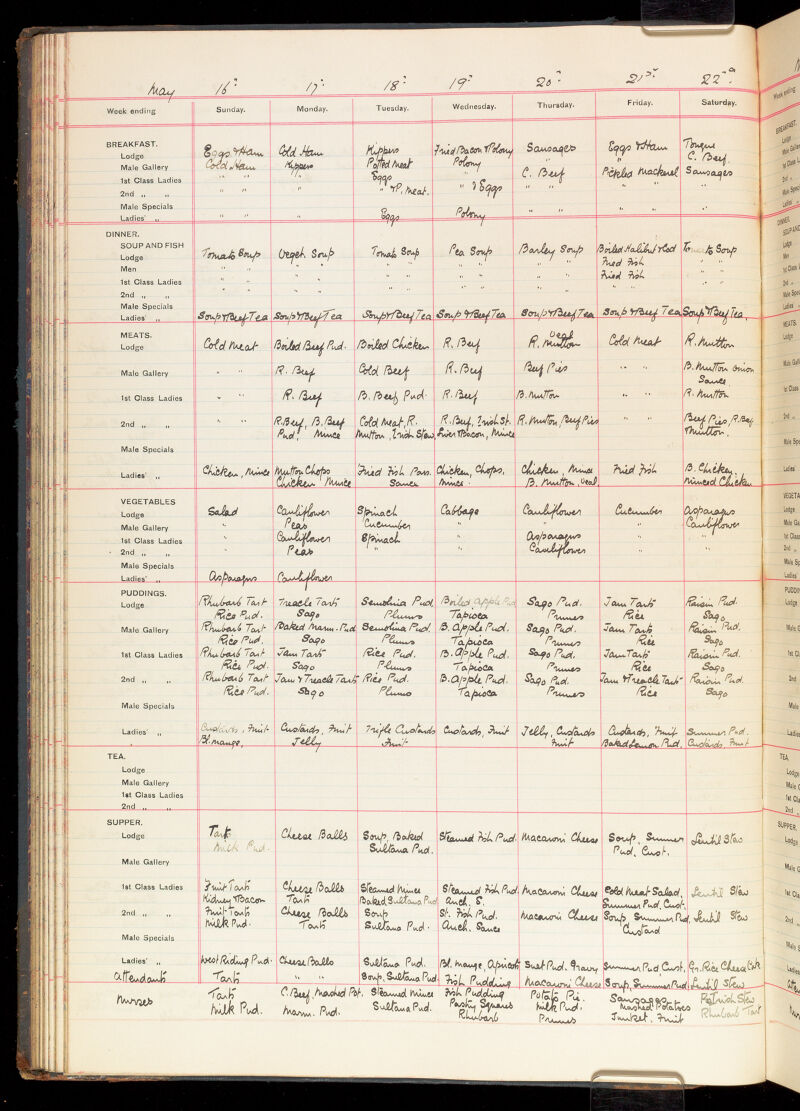 May 16th 17th 18th 19th 20th 21st 22nd
Week ending Sunday. Monday. Tuesday. Wednesday. Thursday. Friday. Saturday.
BREAKFAST.
Lodge Eggs & Ham Cold Ham Kippers Fried Bacon & Polony Sausages Eggs & Ham Tongue
Male Gallery Cold Ham Kippers Potted Meat Polony " " C. Beef
1st Class Ladies " " " " Eggs C. Beef Pickled Mackerel Sausages
2nd " " " " " " & P. Meat. " & Eggs " " " " " "
Male Specials
Ladies' " " " " Eggs Polony " " " " " "
DINNER.
SOUP AND FISH
Lodge Tomato Soup Veget. Soup Tomato Soup Pea Soup Barley Soup Boiled Halibut & Cod Tomato Soup
Men " " " " " " " " " " Fried Fish " "
1st Class Ladies " " " " " " " " " " Fried Fish " "
2nd " " " " " " " " " " " " " "
Male Specials
Ladies' " Soup & Beef Tea Soup & Beef Tea Soup & Beef Tea Soup & Beef Tea Soup & Beef Tea Soup & Beef Tea Soup & Beef Tea.
MEATS.
veal
Lodge Cold Meat Boiled Beef Pud. Boiled Chicken R. Beef R. Mutton Cold Meat R. Mutton
Male Gallery " " R. Beef Cold Beef R. Beef Beef Pies " " B. Mutton onion
Sauce.
1st Class Ladies " " R. Beef B. Beef Pud. R. Beef B. Mutton " " R. Mutton
2nd " " " " R. Beef, B. Beef Cold Meat, R. R. Beef, Irish St. R. Mutton, Beef Pies " " Beef Pies, R. Beef
Pud, Mince Mutton, Irish Stew Liver & Bacon, Mince Mutton.
Male Specials
Ladies' " Chicken, Mince Mutton Chops Fried Fish Pars. Chicken, Chops, Chicken, Mince Fried Fish B. Chicken.
Chicken Mince Sauce Mince. B. Mutton, Veal Minced Chicken
VEGETABLES
Lodge Salad Cauliflower Spinach Cabbage Cauliflower Cucumber Asparagus
Male Gallery " Peas Cucumber " " " Cauliflower
1st Class Ladies " Cauliflower Spinach " Asparagus " "
2nd " " " Peas " " Cauliflower " "
Male Specials
Ladies' " Asparagus Cauliflower
PUDDINGS.
Lodge Rhubarb Tart Treacle Tart Semolina Pud. Boiled Apple Pud Sago Pud. Jam Tart Raisin Pud.
Rice Pud. Sago Plums Tapioca Prunes Rice Sago
Male Gallery Rhubarb Tart Baked Marm. Pud Semolina Pud. B. Apple Pud. Sago Pud. Jam Tart Raisin Pud.
Rice Pud. Sago Plums Tapioca Prunes Rice Sago
1st Class Ladies Rhubarb Tart Jam Tart Rice Pud. B. Apple Pud. Sago Pud. Jam Tart Raisin Pud.
Rice Pud. Sago Plums Tapioca Prunes Rice Sago
2nd " " Rhubarb Tart Jam & Treacle Tart Rice Pud. B. Apple Pud. Sago Pud. Jam & Treacle Tart Raisin Pud.
Rice Pud. Sago Plums Tapioca Prunes Rice Sago
Male Specials
Ladies' " Custards, Fruit Custards, Fruit Trifle Custards Custards, Fruit Jelly, Custards Custards, Fruit Summer Pud.
Bl. mange, Jelly Fruit Fruit Baked Lemon Pud. Custards, Fruit
TEA.
Lodge
Male Gallery
1st Class Ladies
2nd " "
SUPPER.
Lodge Tart Cheese Balls Soup, Baked Steamed Fish Pud. Macaroni Cheese Soup, Summer Lentil Stew
Milk Pud. Sultana Pud. Pud, Cust.
Male Gallery
1st Class Ladies Fruit Tart Cheese Balls Steamed Mince Steamed Fish Pud Macaroni Cheese Cold Meat Salad, Lentil Stew
Kidney & Bacon Tart Baked Sultana Pud Anch. S. Summer Pud, Cust.
2nd " " Fruit Tart Cheese Balls Soup St. Fish Pud. Macaroni Cheese Soup, Summer Pud, Lentil Stew
Milk Pud. Tart Sultana Pud. Anch. Sauce Custard
Male Specials
Ladies' " West Riding Pud. Cheese Balls Sultana Pud. Bl. mange, Apricot Suet Pud. Gravy Summer Pud, Cust, Gr. Rice Cheese Cake
Attendants Tart " " Soup, Sultana Pud. Fish Pudding Macaroni Cheese Soup, Summer Pud Lentil Stew
Nurses Tart C. Beef, Mashed Pot. Steamed Mince Fish Pudding Potato Pie. Sausages
Milk Pud. Marm. Pud. Sultana Pud. Pastry Squares Milk Pud. Mashed Potatoes Rhubarb Tart
Rhubarb Prunes Junket, Fruit